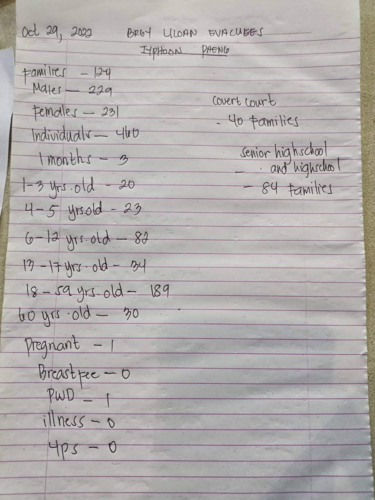 Oct 29, 2022 BRGY LILOAN EVACUEES
TYPHOON PAENG
Families - 124
Males - 229
Females - 231
Individuals - 460
1 months - 3
1-3 yrs.old - 20
4-5 yrs.old - 23
6-12 yrs.old - 82
13-17 yrs.old - 34
18-59 yrs.old - 189
60 yrs.old - 30
Pregnant - 1
Breastfee - 0
PWD - 1
illness - 0
4ps - 0
Covert court
- 40 Families
Senior highschool
- and highschool
- 84 Families